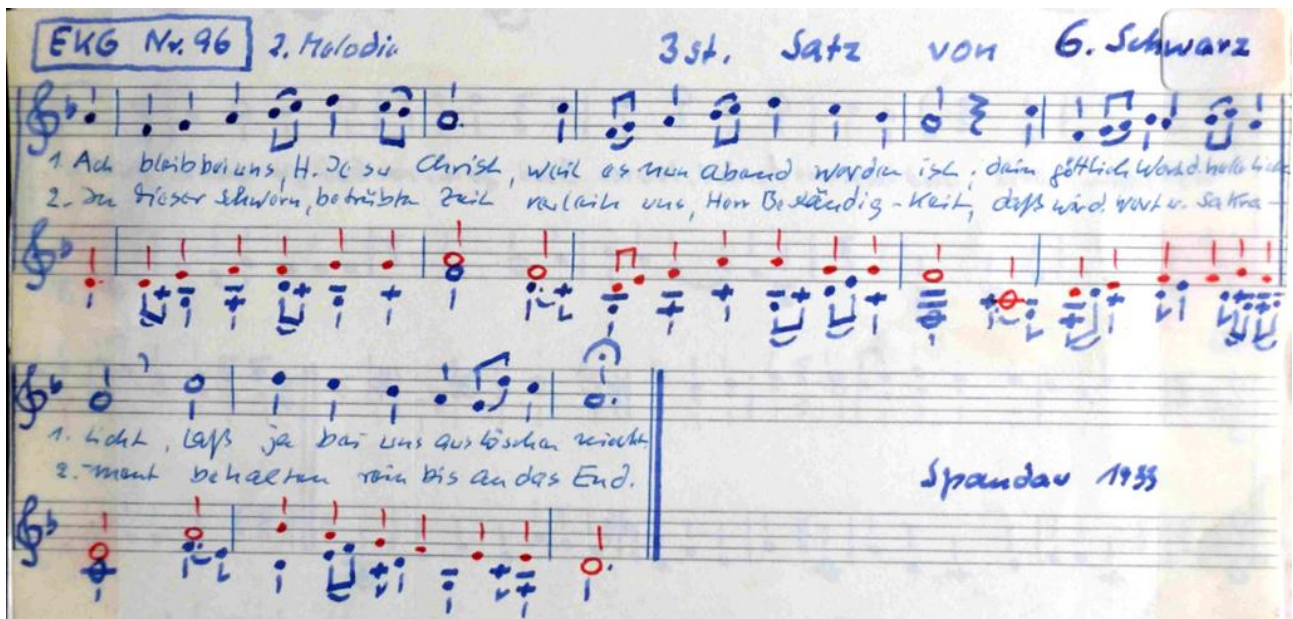 EKG Nr. 96 2. Melodie 3st. Satz von G. Schwarz
1. Ach bleib bei uns, H. Je su Christ, weil es nun abend worden ist; dein göttlich Wort d. helle
2. In dieser schwern, betrübten Zeit verleih uns, Herr Beständig-keit, daß wir d. wort u. Sakra-
1. Licht, laß ja bei uns auslöschen nicht.
2. -ment behalten rein bis an das End.
Spandau 1933